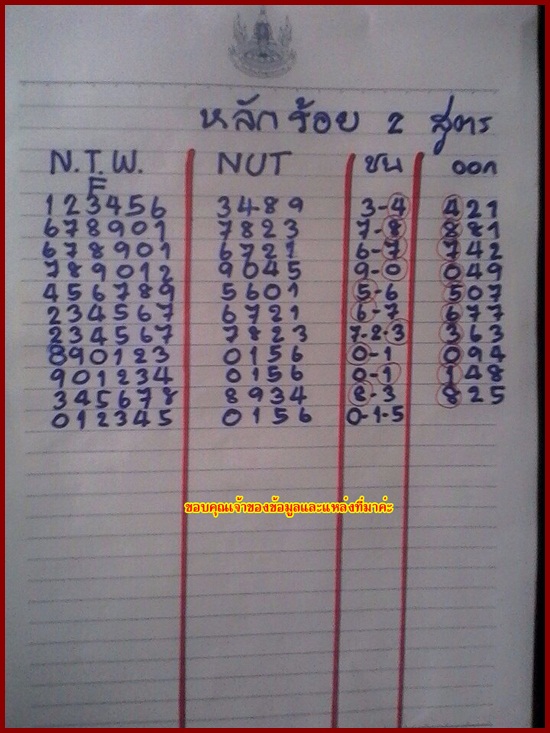 หลักร้อย 2 สูตร
N.T.W. NUT ชน ออก
F
123456 3489 3-4 421
678901 7823 7-8 881
678901 6721 6-7 742
789012 9045 9-0 049
456789 5601 5-6 507
234567 6721 6-7 677
234567 7823 7-2-3 363
890123 0156 0-1 094
901234 0156 0-1 148
345678 8934 8-3 825
012345 0156 0-1-5
ขอบคุณเจ้าของข้อมูลและแหล่งที่มาค่ะ